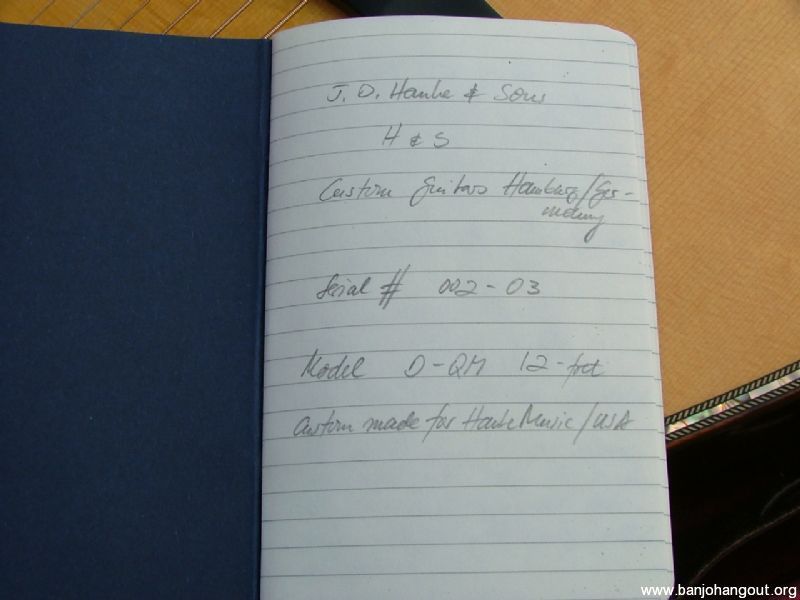 J. D. Hanke & Sons
H & S
Custom Guitars Hamburg/Ger-
many
Serial # 002-03
Model D-QM 12-fret
Custom made for Hanke Music/USA
www.banjohangout.org